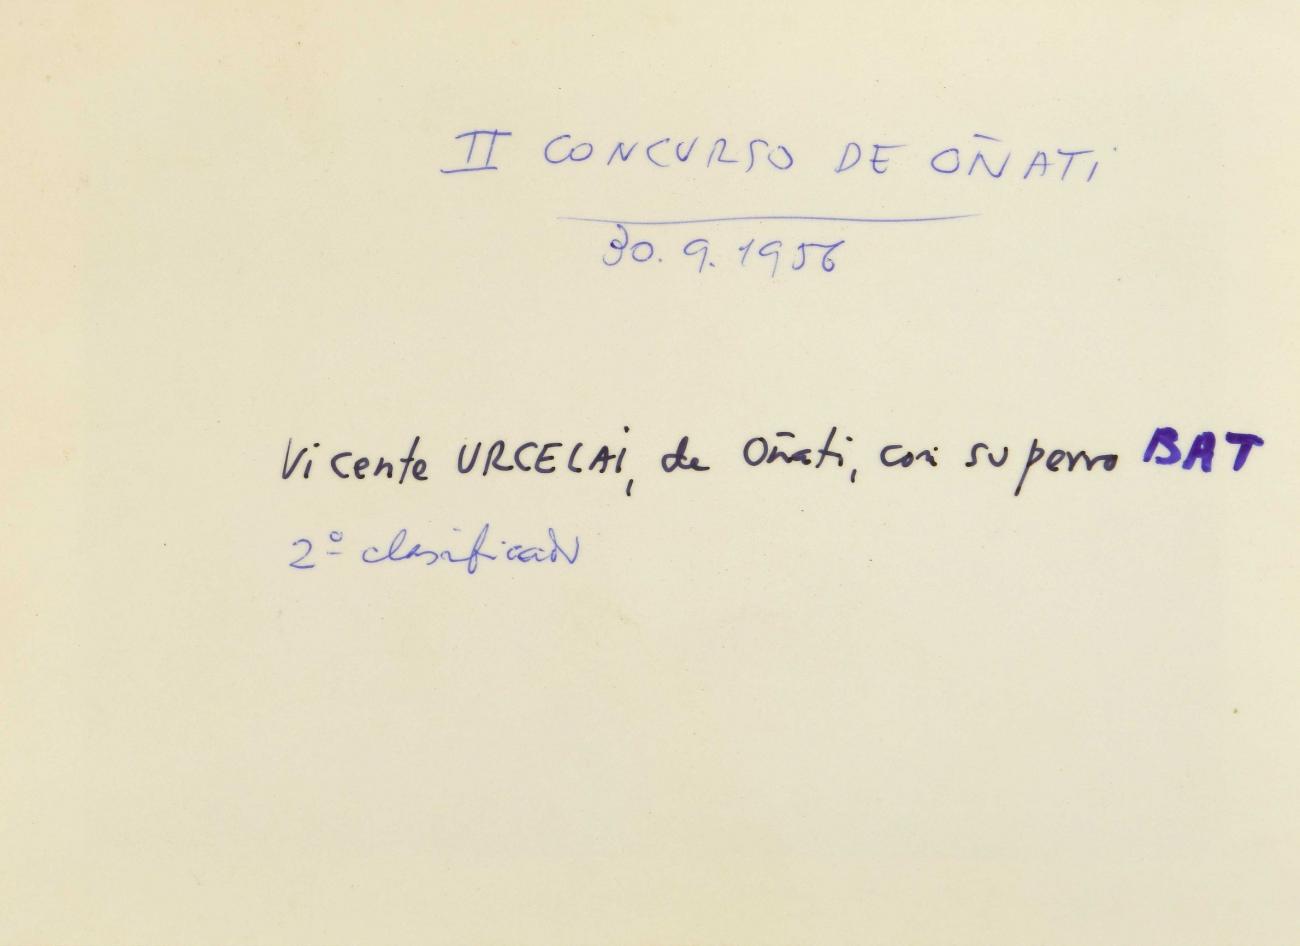 II CONCURSO DE OÑATI
30.9.1956
Vicente URCELAI, de Oñati, con su perro BAT
2º clasificado